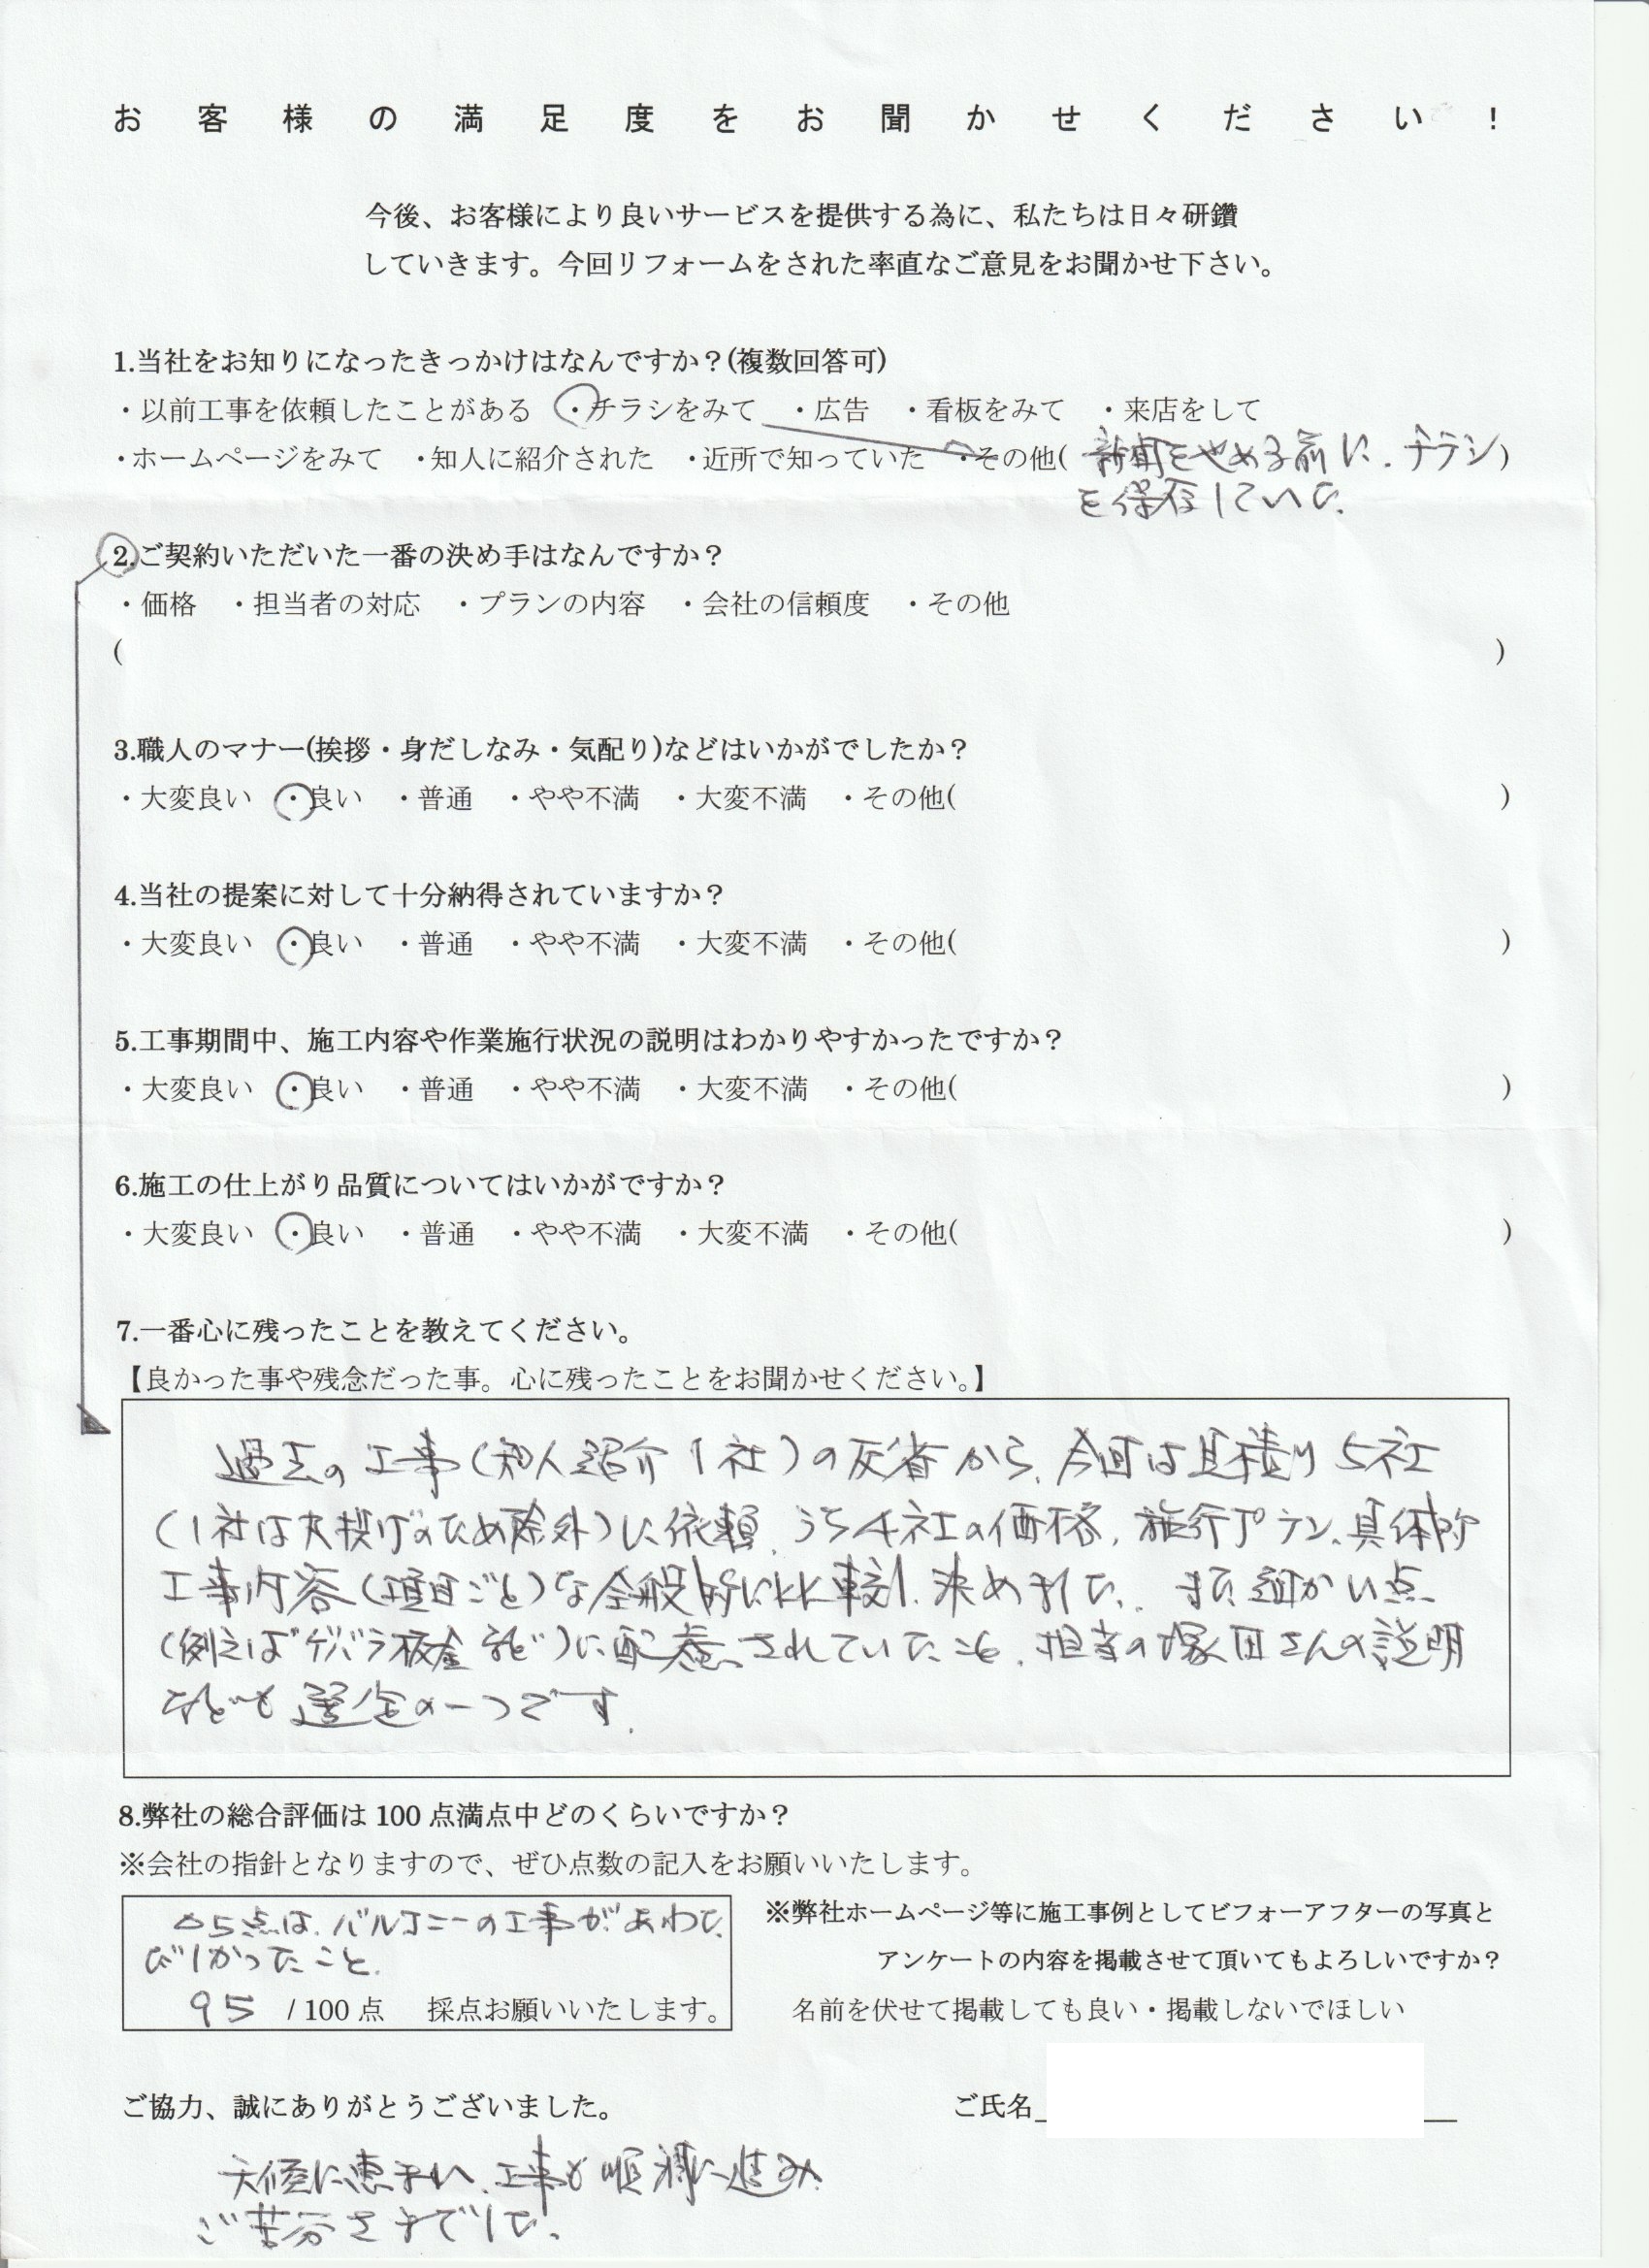 お客様の満足度をお聞かせください！
今後、お客様により良いサービスを提供する為に、私たちは日々研鑽
していきます。今回リフォームをされた率直なご意見をお聞かせ下さい。
1.当社をお知りになったきっかけはなんですか？(複数回答可)
・以前工事を依頼したことがある ・チラシをみて ・広告 ・看板をみて ・来店をして
・ホームページをみて ・知人に紹介された ・近所で知っていた ・その他( 新聞をやめる前に、チラシ)
を保存していた。
2.ご契約いただいた一番の決め手はなんですか？
・価格 ・担当者の対応 ・プランの内容 ・会社の信頼度 ・その他
( )
3.職人のマナー(挨拶・身だしなみ・気配り)などはいかがでしたか？
・大変良い ・良い ・普通 ・やや不満 ・大変不満 ・その他( )
4.当社の提案に対して十分納得されていますか？
・大変良い ・良い ・普通 ・やや不満 ・大変不満 ・その他( )
5.工事期間中、施工内容や作業施行状況の説明はわかりやすかったですか？
・大変良い ・良い ・普通 ・やや不満 ・大変不満 ・その他( )
6.施工の仕上がり品質についてはいかがですか？
・大変良い ・良い ・普通 ・やや不満 ・大変不満 ・その他( )
7.一番心に残ったことを教えてください。
【良かった事や残念だった事。心に残ったことをお聞かせください。】
過去の工事(知人紹介1社)の反省から、今回は見積り5社
(1社は丸投げのため除外)に依頼、うち4社の価格、施行プラン、具体的
工事内容(項目ごと)な全般的に比較し、決めました。また細かい点
(例えばケバラ板金など)に配慮されていたこと、担当の塚田さんの説明
なども選定の一つです。
8.弊社の総合評価は 100 点満点中どのくらいですか？
※会社の指針となりますので、ぜひ点数の記入をお願いいたします。
△5点は、バルコニーの工事があわた
びしかったこと。
95 / 100 点 採点お願いいたします。
※弊社ホームページ等に施工事例としてビフォーアフターの写真と
アンケートの内容を掲載させて頂いてもよろしいですか？
名前を伏せて掲載しても良い・掲載しないでほしい
ご協力、誠にありがとうございました。 ご氏名
天候に恵まれ、工事も順調に進み
ご苦労さまでした。